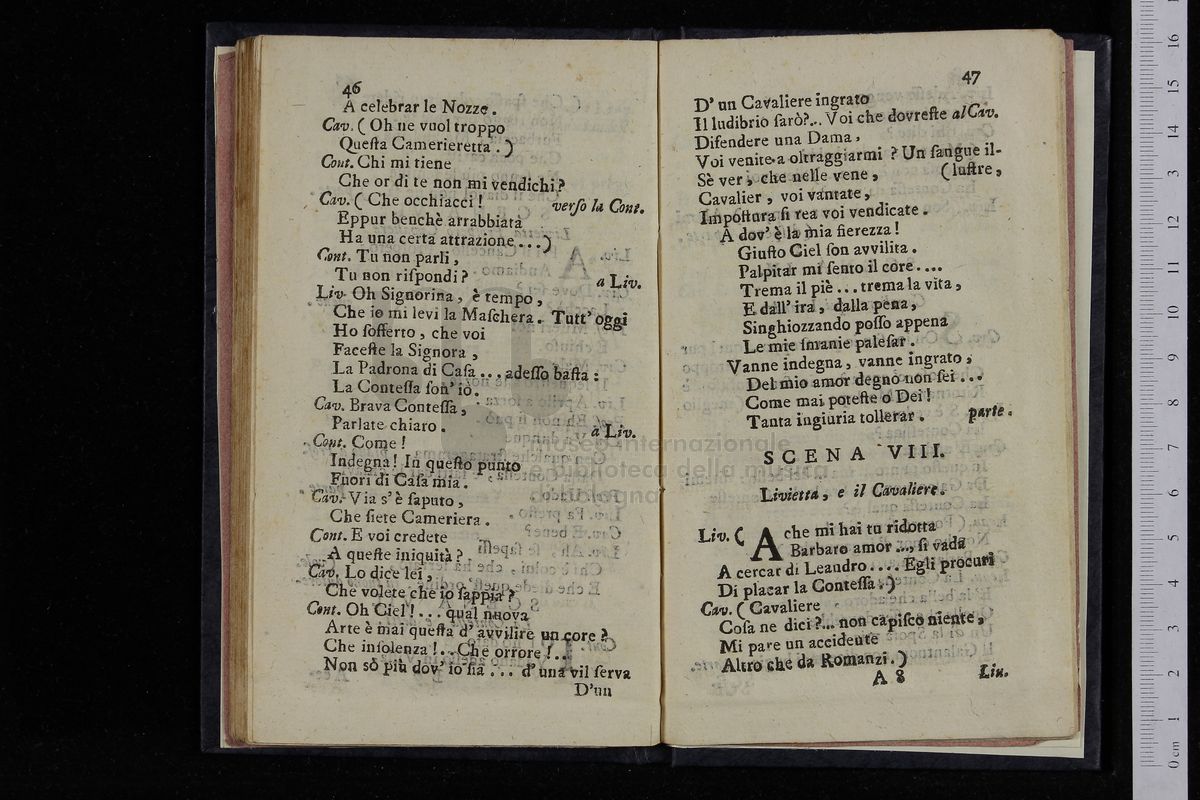 46
A celebrar le Nozze.
Cav. ( Oh ne vuol troppo
Queſta Camerieretta. )
Cont. Chi mi tiene
Che or di te non mi vendichi?
Cav. ( Che occhiacci! verſo la Cont.
Eppur benchè arrabbiata
Ha una certa attrazione... )
Cont. Tu non parli,
Tu non riſpondi? a Liv.
Liv. Oh Signorina, è tempo,
Che io mi levi la Maſchera. Tutt' oggi
Ho ſofferto, che voi
Faceſte la Signora,
La Padrona di Caſa... adeſſo baſta:
La Conteſſa ſon' io.
Cav. Brava Conteſſa,
Parlate chiaro. a Liv.
Cont. Come!
Indegna! In queſto punto
Fuori di Caſa mia.
Cav. Via s'è ſaputo,
Che ſiete Cameriera.
Cont. E voi credete
A queſte iniquità?
Cav. Lo dice lei,
Che volete che io ſappia?
Cont. Oh Ciel!... qual nuova
Arte è mai queſta d' avvilire un core?
Che inſolenza!.. Che orrore!..
Non sò più dov' io ſia... d' una vil ſerva
D'un
47
D' un Cavaliere ingrato
Il ludibrio ſarò?.. Voi che dovreſte al Cav.
Difendere una Dama,
Voi venite a oltraggiarmi? Un ſangue il-
Sè ver, che nelle vene, (luſtre,
Cavalier, voi vantate,
Impoſtura ſi rea voi vendicate.
A dov' è la mia fierezza!
Giuſto Ciel ſon avvilita.
Palpitar mi ſento il core....
Trema il piè... trema la vita,
E dall' ira, dalla pena,
Singhiozzando poſſo appena
Le mie ſmanie paleſar.
Vanne indegna, vanne ingrato,
Del mio amor degno non ſei...
Come mai poteſte o Dei!
Tanta ingiuria tollerar. parte.
SCENA VIII.
Livietta, e il Cavaliere.
Liv. ( A che mi hai tu ridotta
Barbaro amor..., ſi vada
A cercar di Leandro.... Egli procuri
Di placar la Conteſſa. )
Cav. ( Cavaliere
Coſa ne dici?... non capiſco niente,
Mi pare un accidente
Altro che da Romanzi. )
A 8 Liv.
Museo internazionale
e biblioteca della musica
di Bologna